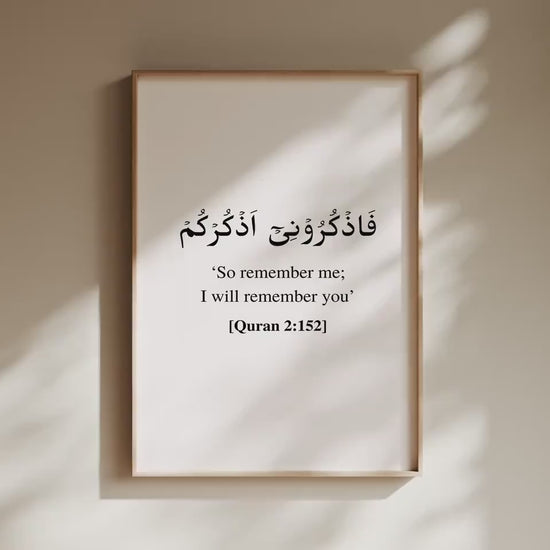 فَاذۡكُرُوۡنِىۡٓ اَذۡكُرۡكُمۡ
‘So remember me;
I will remember you’
[Quran 2:152]